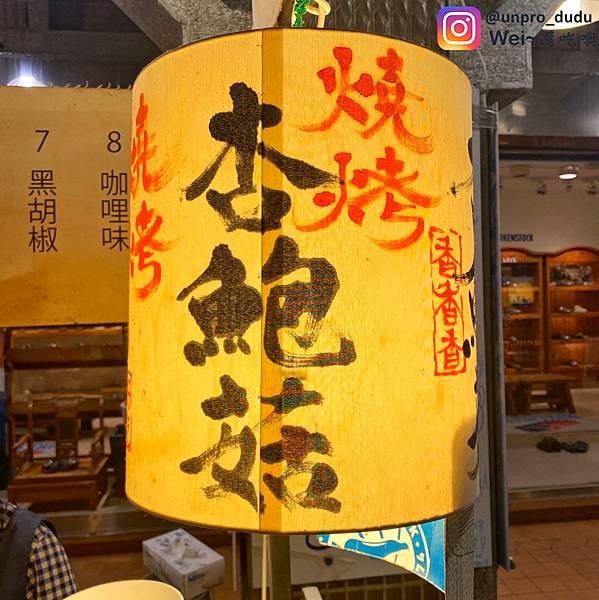 @unpro_dudu
Wei~
7 黑胡椒
8 咖哩味
燒烤
杏鮑菇
燒烤
香香香
BIRKENSTOCK